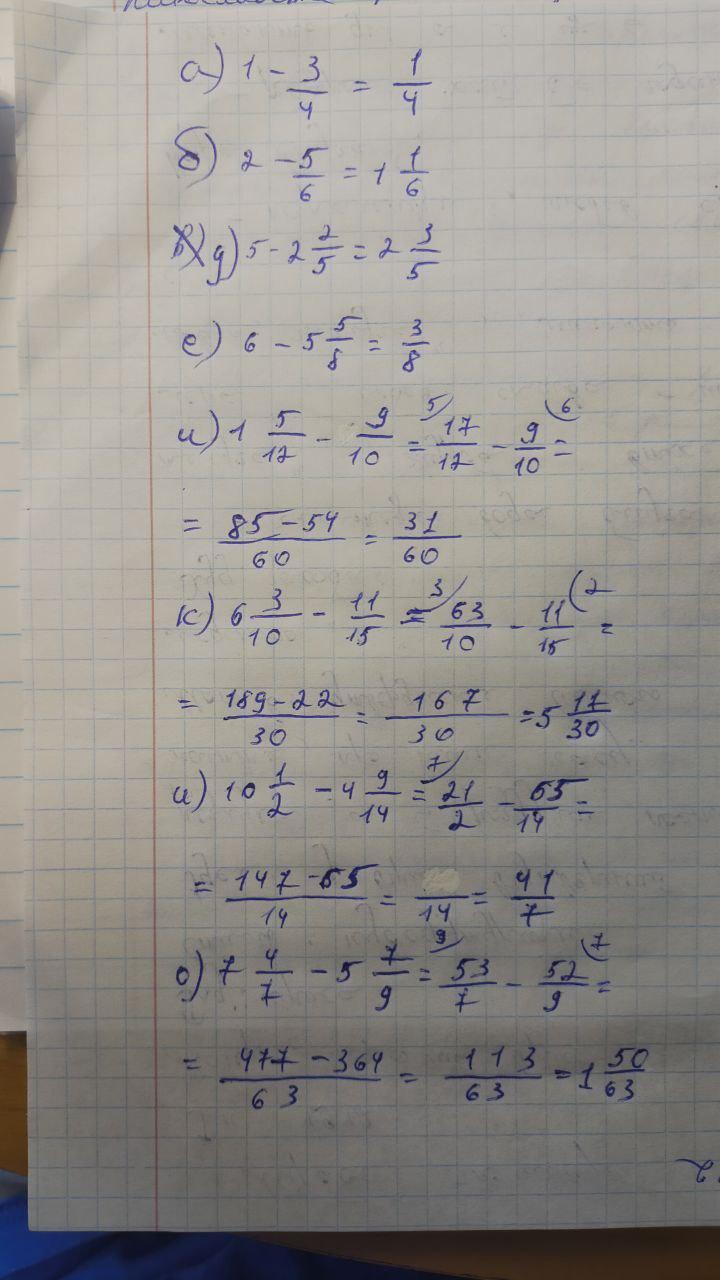 а) 1 - 3/4 = 1/4
б) 2 - 5/6 = 1 1/6
в) д) 5 - 2 2/5 = 2 3/5
е) 6 - 5 5/8 = 3/8
и) 1 5/12 - 9/10 = 5) 17/12 - 9/10 (6 =
= 85 - 54/60 = 31/60
к) 6 3/10 - 11/15 = 3) 63/10 - 11/15 (2 =
= 189 - 22/30 = 167/30 = 5 17/30
и) 10 1/2 - 4 9/14 = 7) 21/2 - 65/14 =
= 147 - 65/14 = /14 = 41/7
о) 7 4/7 - 5 7/9 = 9) 53/7 - 52/9 (7 =
= 477 - 364/63 = 113/63 = 1 50/63